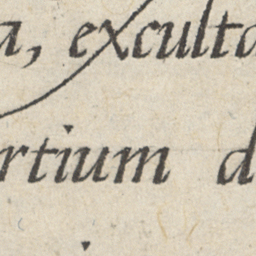 a, exculta
rtium d